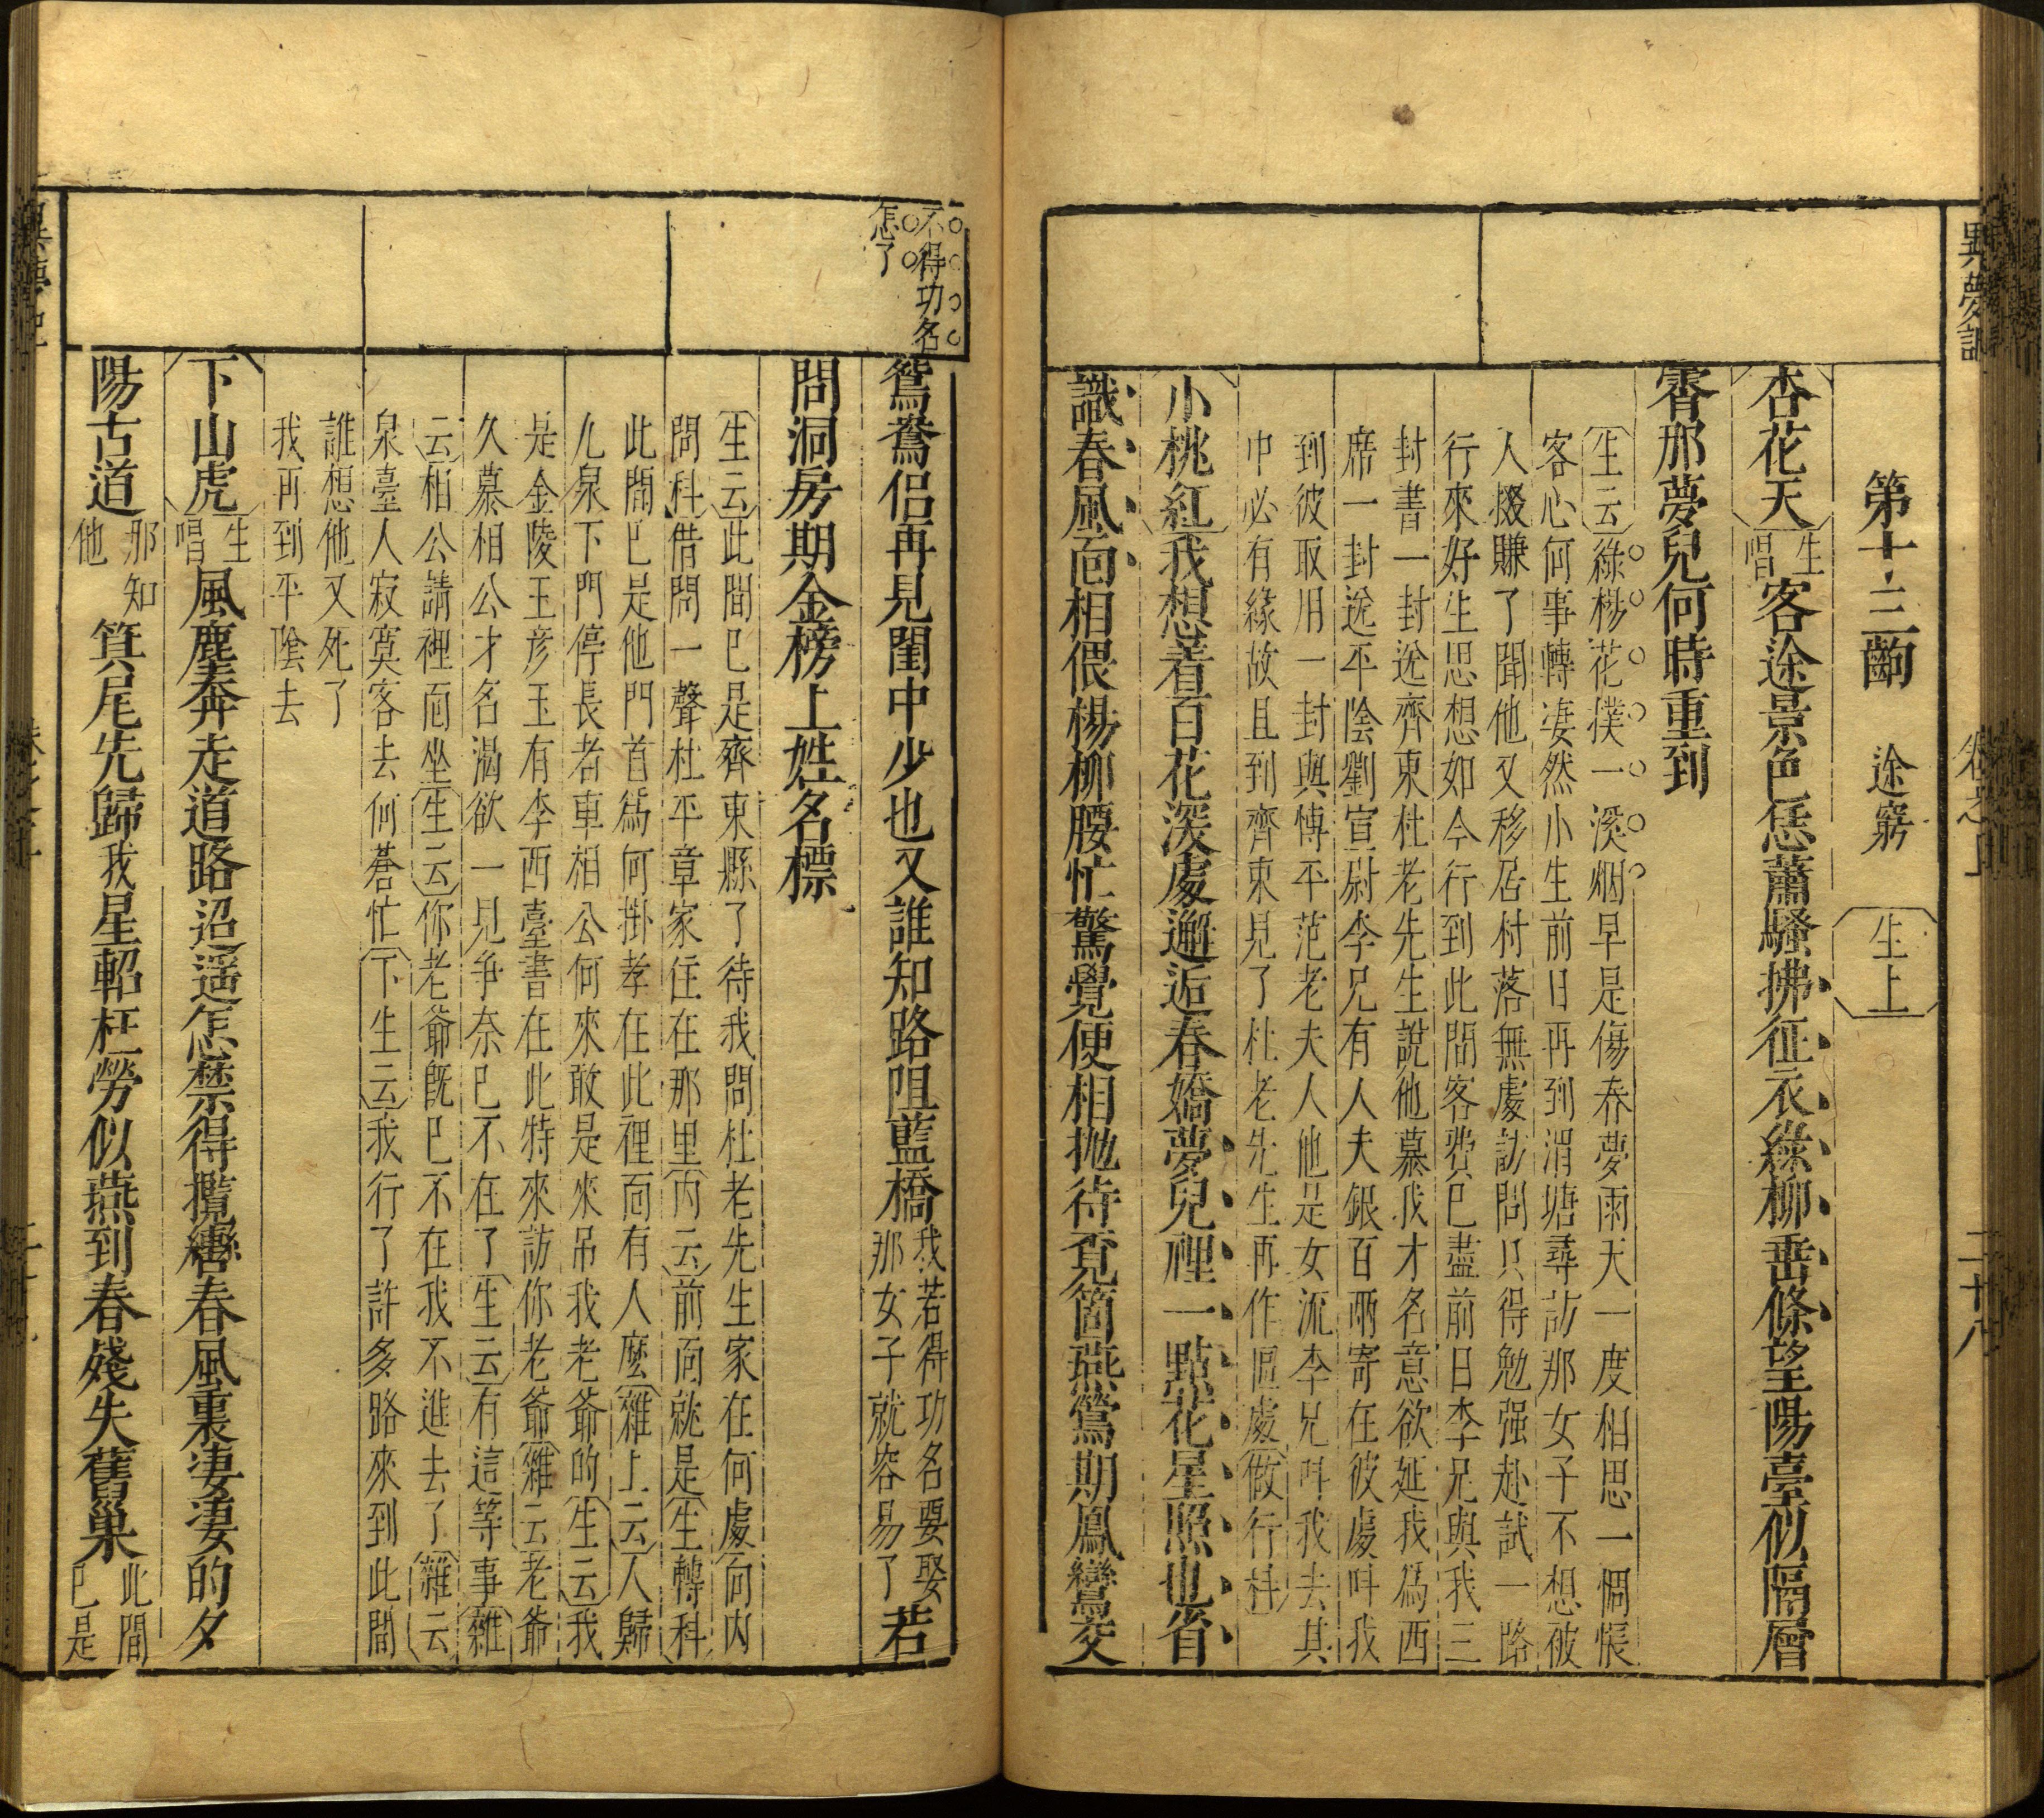 異夢記
卷之上
二十八
第十三齣 途窮 生上
杏花天 生唱 客途景色恁蕭騷拂征衣綠柳垂條望陽臺似隔層
霄那夢兒何時重到
生云綠楊花撲一溪烟早是傷春夢雨天一度相思一惆悵
客心何事轉凄然小生前日再到渭塘尋訪那女子不想被
人掇賺了聞他又移居村落無處訪問只得勉强赴試一路
行來好生思想如今行到此間客費已盡前日李兄與我三
封書一封送齊東杜老先生說他慕我才名意欲延我為西
席一封送平陰劉宣尉李兄有人夫銀百兩寄在彼處呌我
到彼取用一封與博平范老夫人他是女流李兄呌我去其
中必有緣故且到齊東見了杜老先生再作區處做行科
小桃紅我想着百花深處邂逅春嬌夢兒裡一點花星照也省
識春風面相偎楊柳腰忙驚覺便相抛待覓箇燕鶯期鳳鸞交
不得功名
怎了
鴛鴦侶再見閨中少也又誰知路阻藍橋我若得功名要娶那女子就容易了若
問洞房期金榜上姓名標
生云此間已是齊東縣了待我問杜老先生家在何處向內
問科借問一聲杜平章家住在那里丙云前面就是生轉科
此間已是他門首為何掛孝在此裡面有人麽雜上云人歸
九泉下門停長者車相公何來敢是來吊我老爺的生云我
是金陵王彦玉有李西臺書在此特來訪你老爺雜云老爺
久慕相公才名渴欲一見爭奈已不在了生云有這等事雜
云相公請裡面坐生云你老爺既已不在我不進去了雜云
泉臺人寂寞客去何蒼忙下生云我行了許多路來到此間
誰想他又死了
我再到平陰去
下山虎 生唱 風塵奔走道路迢遥怎禁得攬轡春風裏凄凄的夕
陽古道那知他箕尾先歸我星軺枉勞似燕到春殘失舊巢此間已是